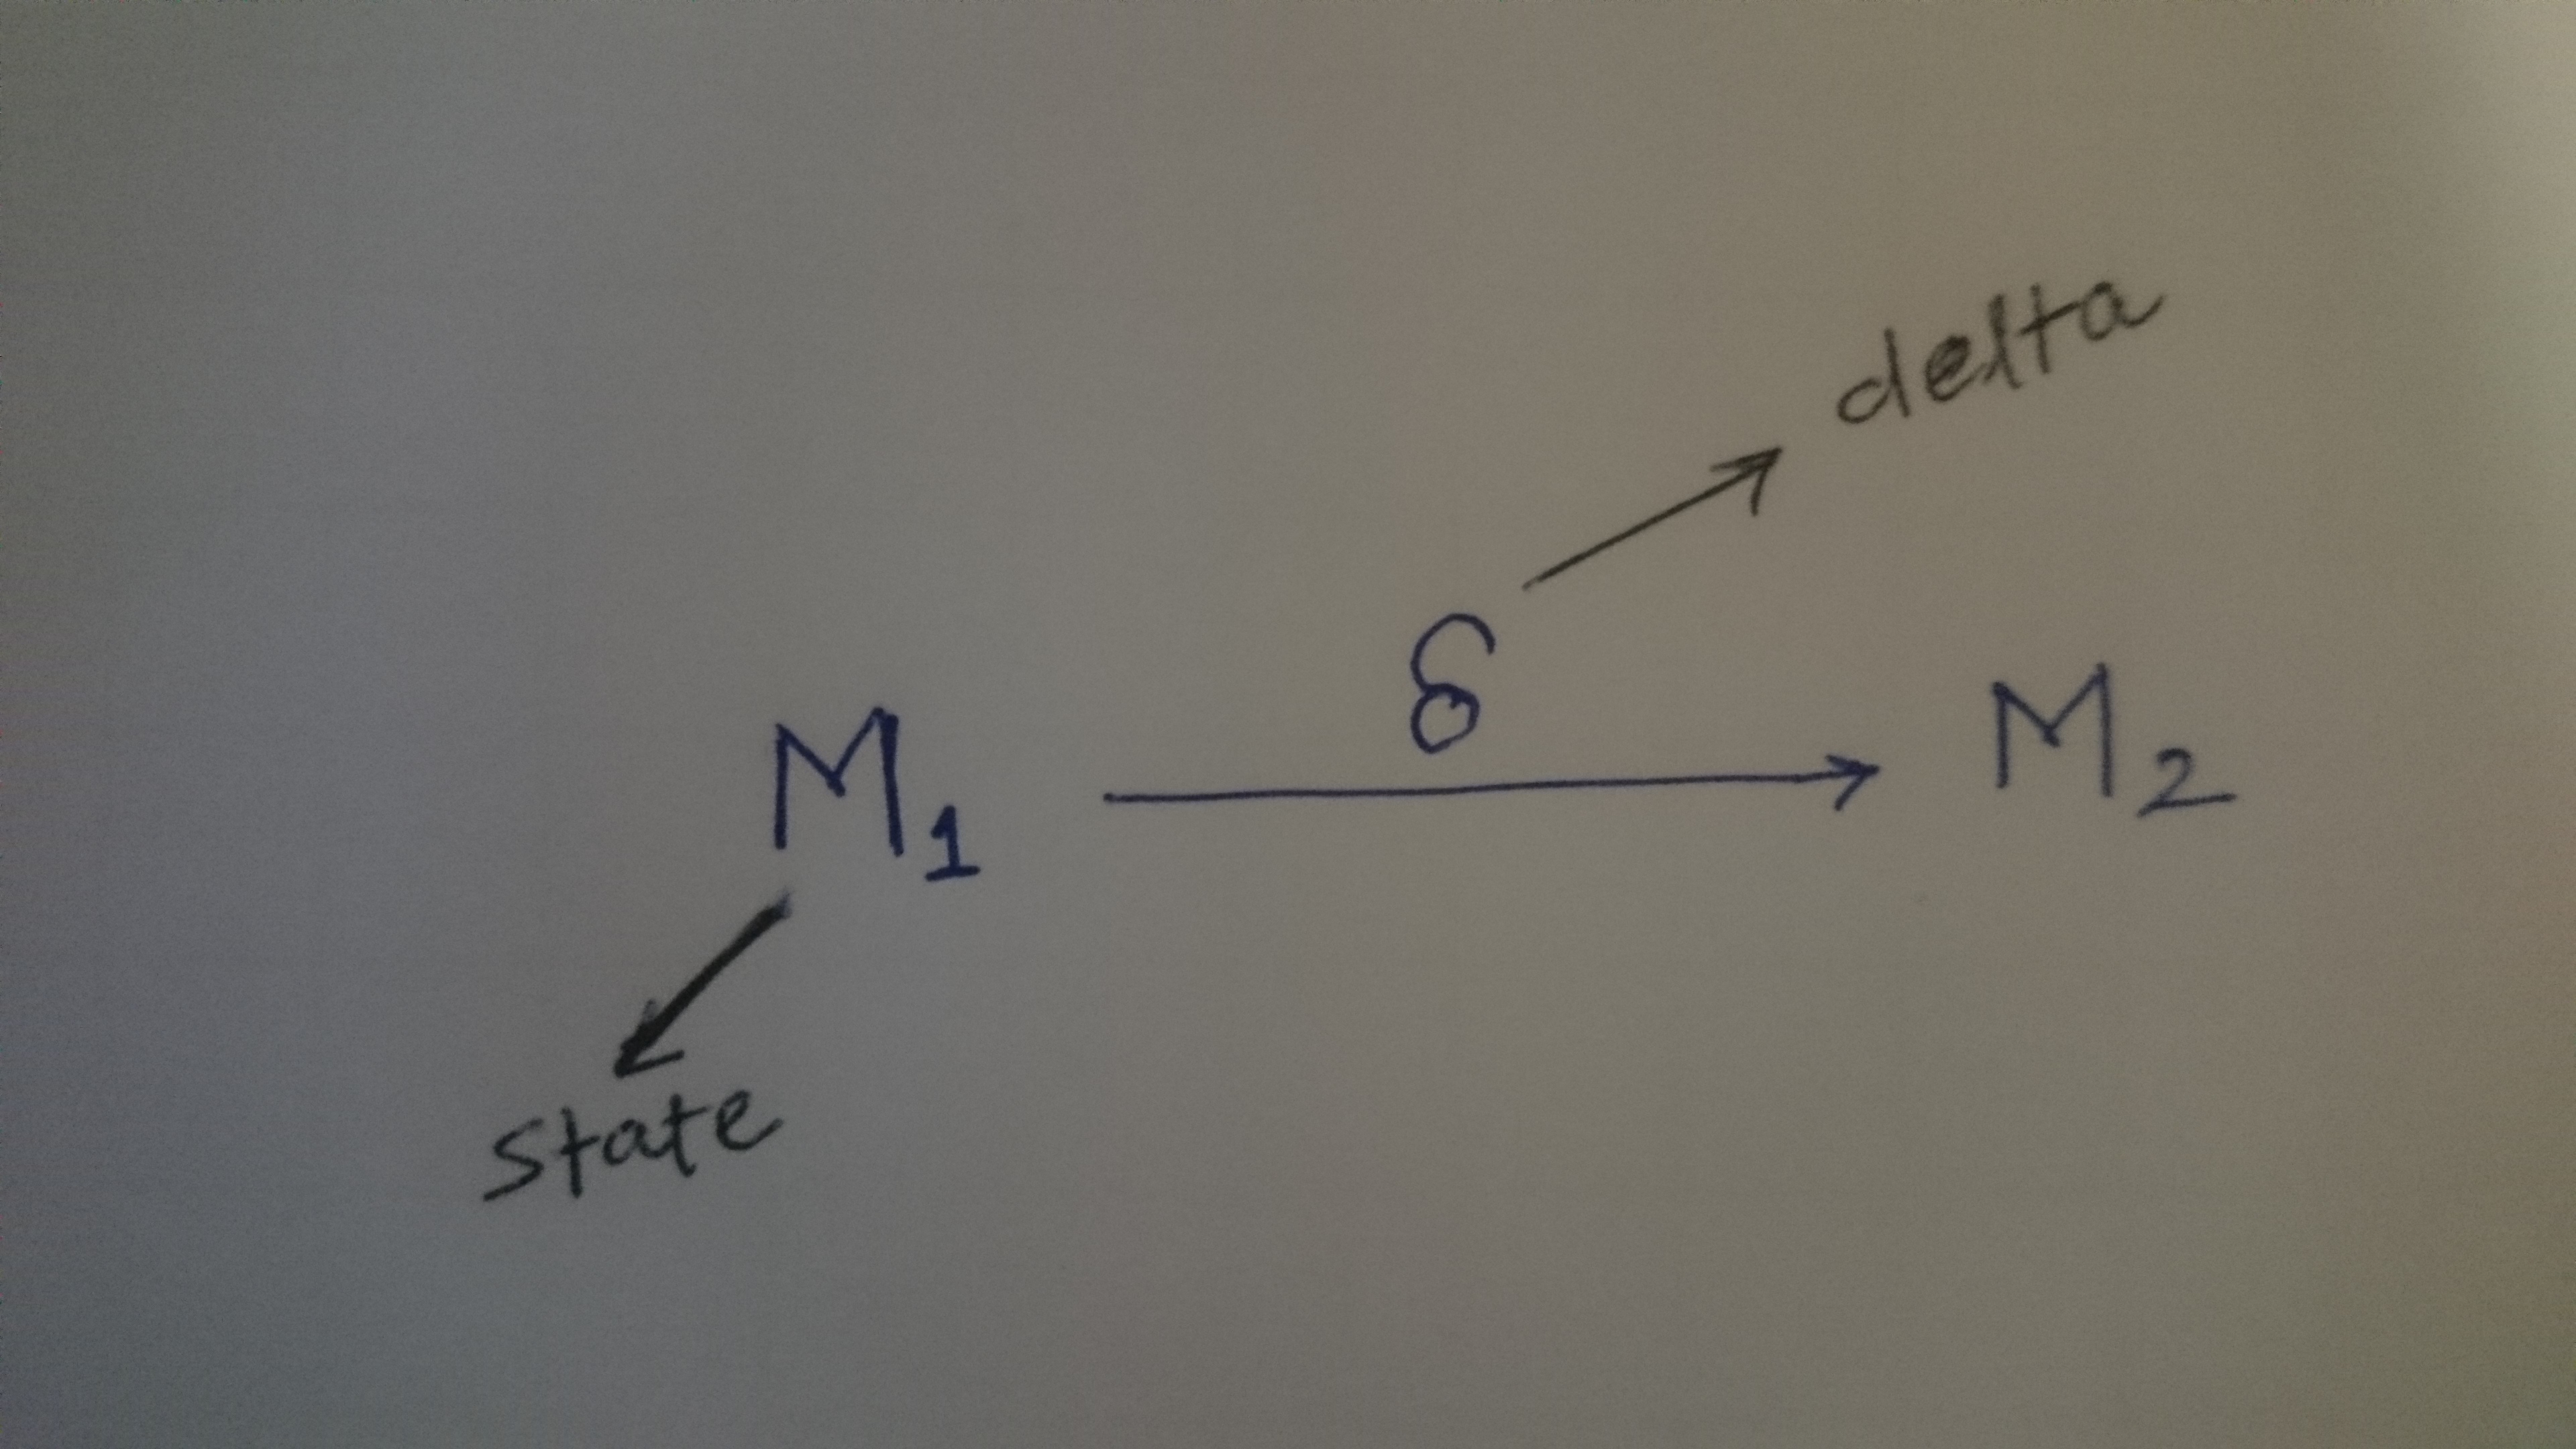 delta
δ
M₁ → M₂
state